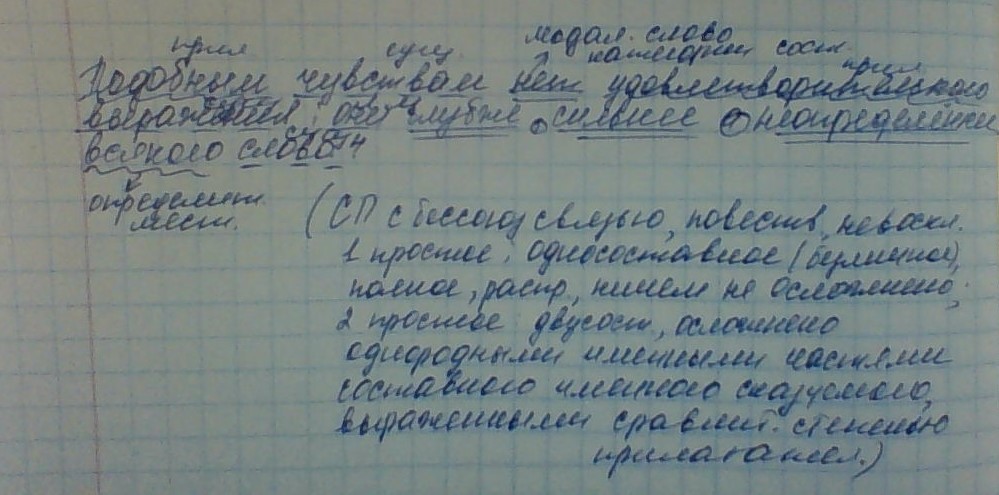 модал. слово
прил сущ категории сост. прил
Подобным чувствам нет удовлетворительного
выражения: они глубже, сильнее, неопределённее
сущ
всякого слова
определит.
мест.
(СП с бессоюз связью, повеств, невоскл.
1 простое: односоставное (безличное),
полное, распр, ничем не осложнено;
2 простое двусост, осложнено
однородными именными частями
составного именного сказуемого,
выраженными сравнит. степенью
прилагател.)